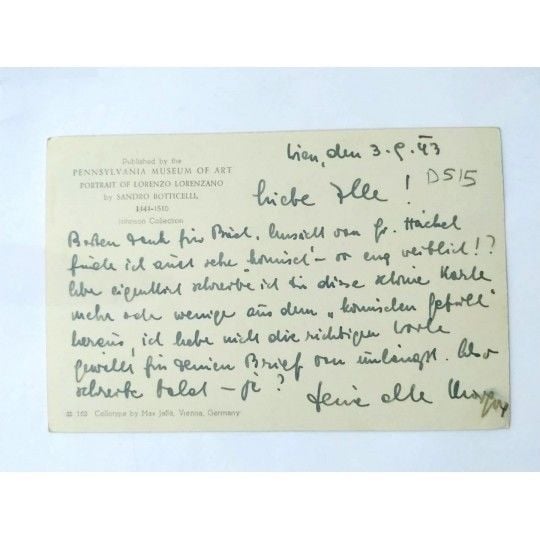 Published by the
PENNSYLVANIA MUSEUM OF ART
PORTRAIT OF LORENZO LORENZANO
by SANDRO BOTTICELLI,
1444-1510
Johnson Collection
Wien, den 3.9.43
D515
Liebe Ille!
Dank für Brief, von Gr. Häckel
finde ich auch sehr "komisch" - so eng weiblich!?
Aber eigentlich schreibe ich Dir diese schöne Karte
mehr oder weniger aus dem "komischen Gefühl"
heraus, ich habe nicht die richtigen Worte
gewählt für deinen Brief von unlängst. Also
schreibe bald - ja?
Deine alte
163 Collotype by Max Jaffé, Vienna, Germany